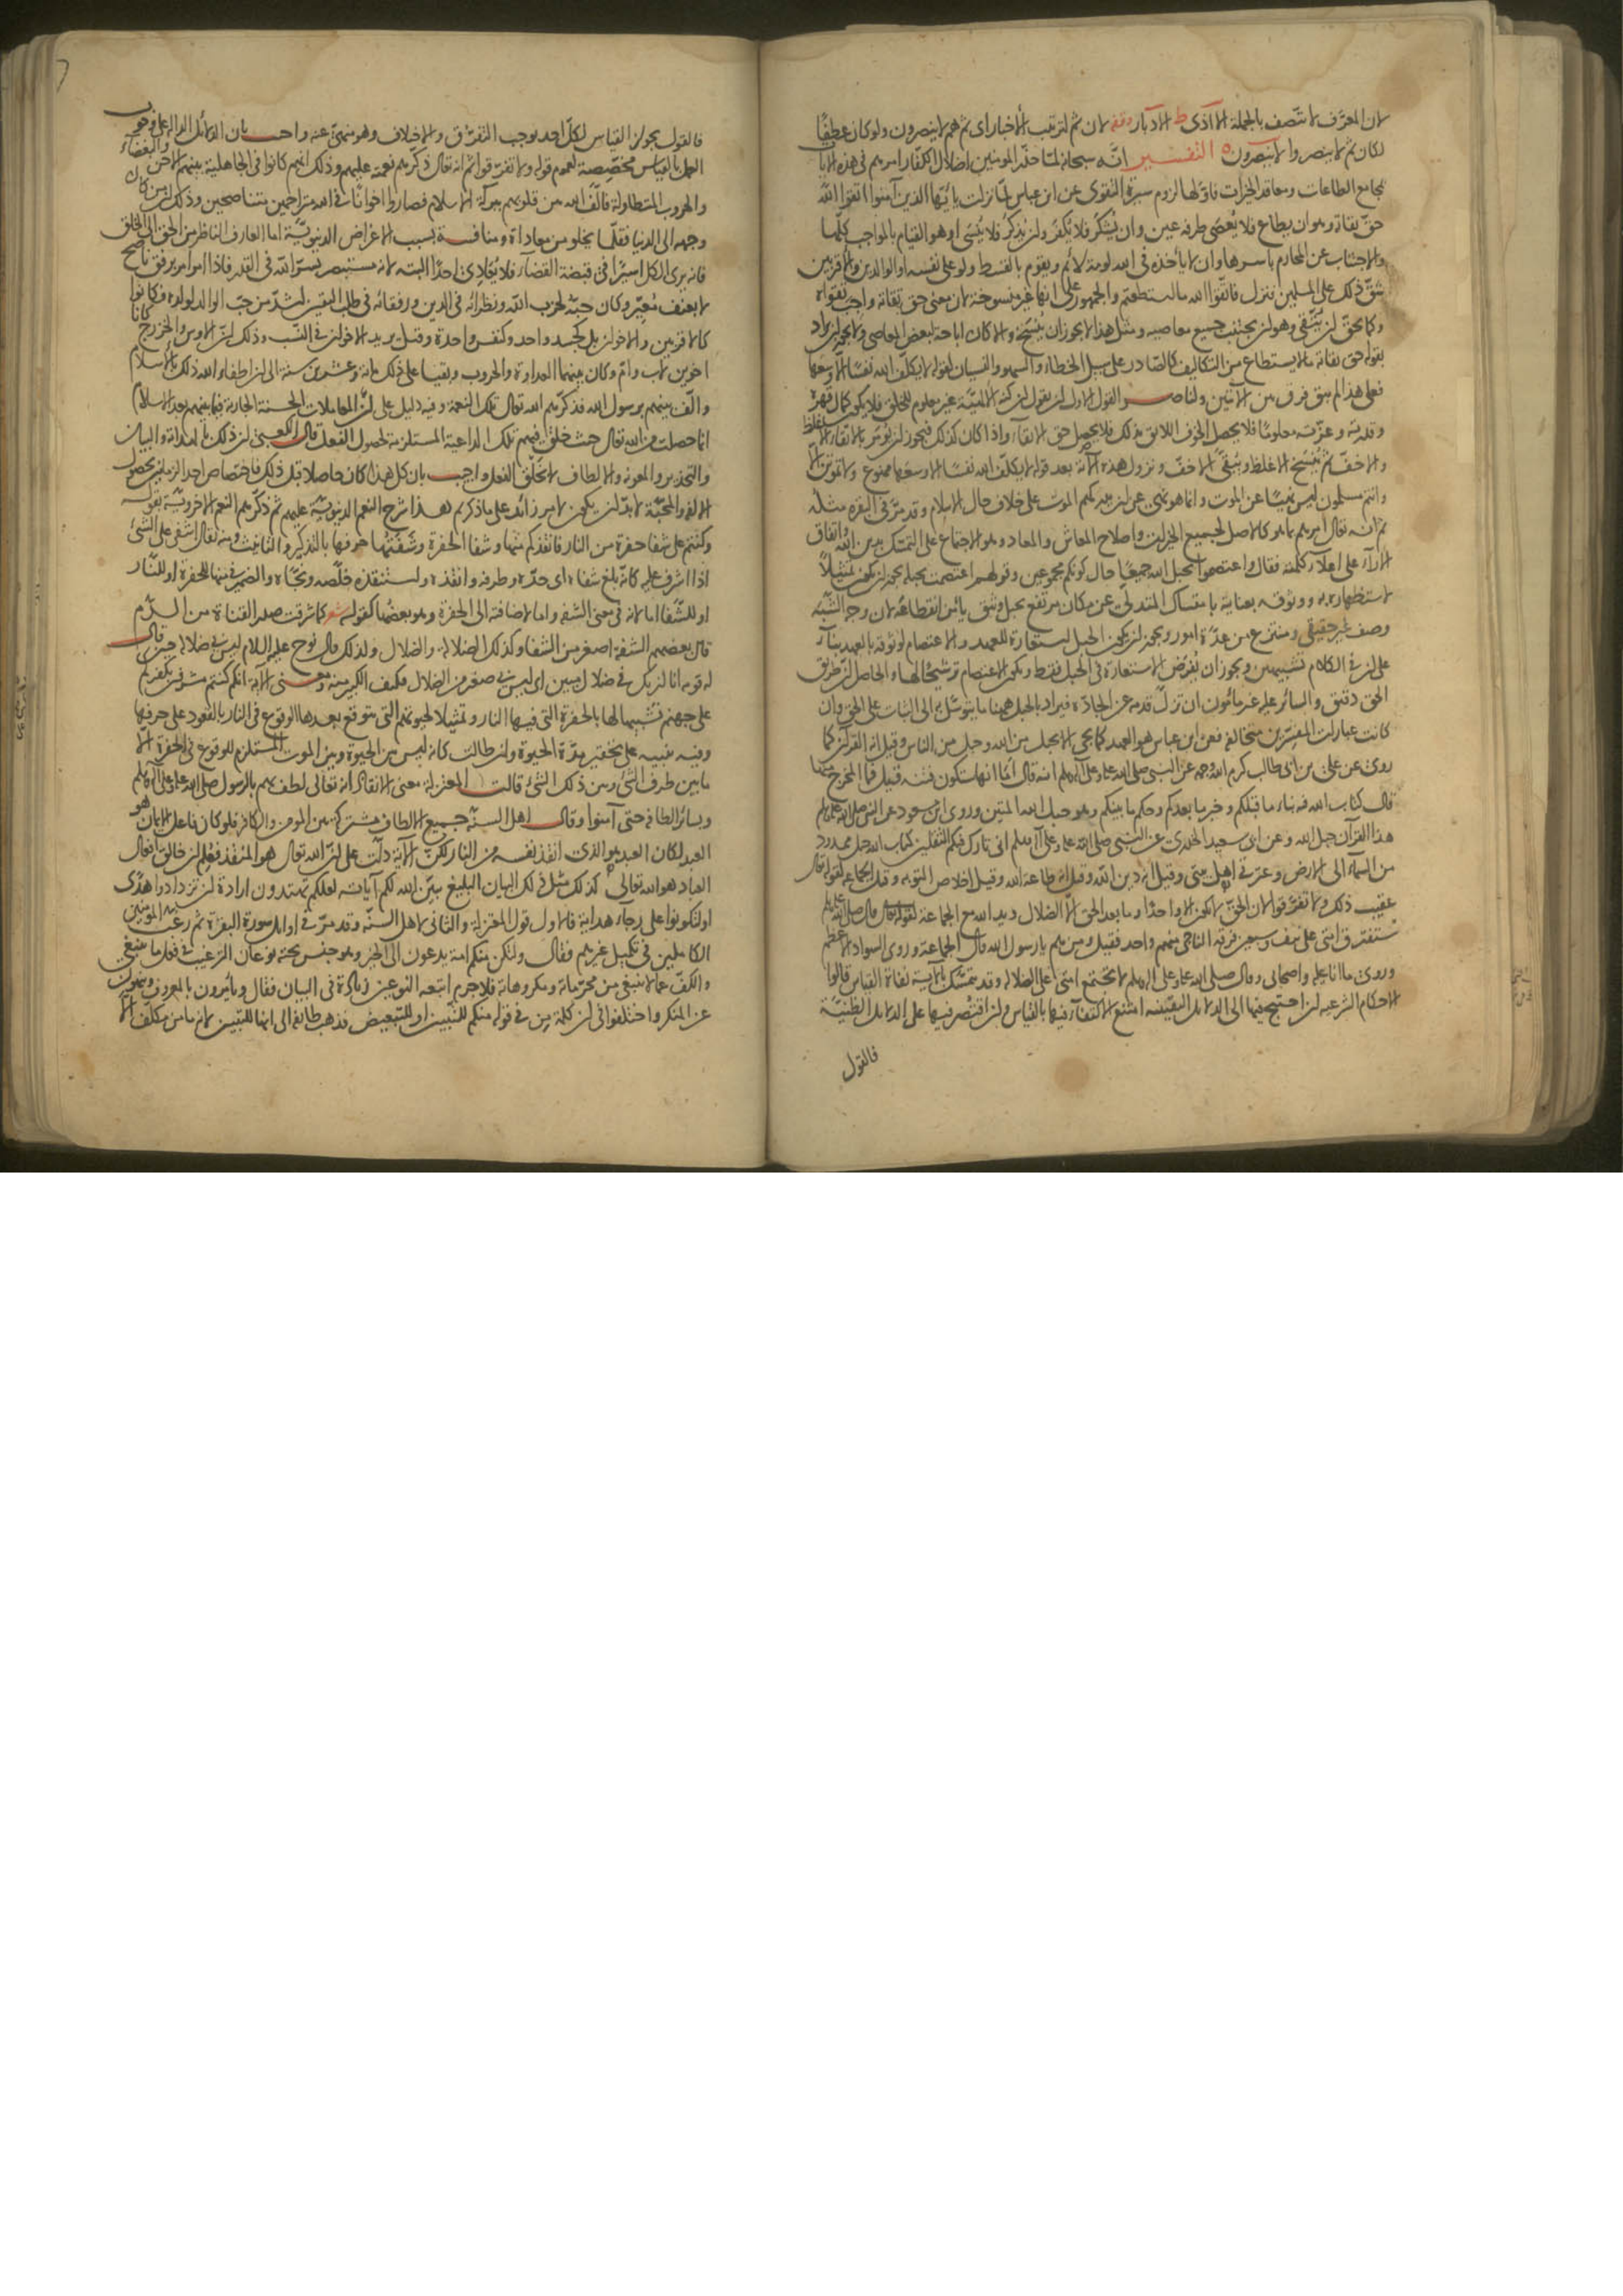 لان المعرف لا تتصف بالجملة الا اذى ط الادبار وقفه لان ثم لترتيب الأخبار اى ثم هم لا ينصرون ولو كان عطفًا
لكان ثم لا ينصروا لا ينصرون ه التفسير انه سبحانه لما حذّر المومنين اضلال الكفار امرهم فى هذه الايات
بمجامع الطاعات ومعاقد الخيرات فاولها لزوم سيرة التقوى عن ابن عباس لما نزلت يا ايها الذين آمنوا اتقوا الله
حق تقاته وهو ان يطاع فلا يعصى طرفة عين وان يشكر فلا يكفر ولن يذكر فلا ينسى او هو القيام بالمواجب كلها
والاجتناب عن المحارم باسرها وان لا يأخذه فى الله لومة لائم ويقوم بالقسط ولو على نفسه او الوالدين والاقربين
شق ذلك على المسلمين فنزل فاتقوا الله ما استطعتم والجمهور على انها غير منسوخة لان معنى حق تقاته واجب تقواه
وكما يحق ان يتقى وهو ان يجتنب جميع معاصيه ومثل هذا لا يجوز ان ينسخ والا كان اباحة لبعض المعاصى ولا يجوز ان يراد
بقوله حق تقاته ما لا يستطاع من التكاليف كالصادر على سبيل الخطاء والسهو والنسيان لقوله لا يكلف الله نفسًا الا وسعها
فعلى هذا لم يبق فرق بين الايتين ولناصر القول الاول ان يقول ان كنه الالهية غير معلوم للخلق فلا يكون كمال قهره
وقدرته وعزته معلومًا فلا يحصل الخوف اللائق بذلك فلا يحصل حق الاتقاء واذا كان كذلك فيجوز ان يؤمر بالاتقاء الاغلظ
والاخف ثم ينسخ الاغلظ ويبقى الاخف ونزول هذه الاية بعد قوله لا يكلف الله نفسًا الا وسعها ممنوع ولا تموتن الا
وانتم مسلمون ليس نهيًا عن الموت وانما هو نهى عن ان يدركهم الموت على خلاف حال الاسلام وقد مر فى البقرة مثله
ثم انه تعالى امرهم بما هو كالاصل لجميع الخيرات واصلاح المعاش والمعاد وهو الاجتماع على التمسك بدين الله واتفاق
الآراء على اعلاء كلمته فقال واعتصموا بحبل الله جميعًا حال كونكم مجموعين وقولهم اعتصمت بحبله يجوز ان يكون تمثيلا
لاستظهاره به ووثوقه بعنايته باستمساك المتدلى عن مكان مرتفع بحبل وثيق يأمن انقطاعه لان وجه الشبه
وصف غير حقيقى ومنتزع من عدة امور ويجوز ان يكون الحبل استعارة للعهد والاعتصام لوثوقه بالعهد بناء
على ان فى الكلام تشبيهين ويجوز ان يفرض الاستعارة فى الحبل فقط ويكون الاعتصام ترشيحًا لها والحاصل ان طريق
الحق دقيق والسائر عليه غير مأمون ان تزل قدمه عن الجادة فيراد بالحبل ههنا ما يتوسل به الى الثبات على الحق وان
كانت عبارات المفسرين متخالفة فعن ابن عباس هو العهد كما يجى الا بحبل من الله وحبل من الناس وقيل انه القرآن كما
روى عن على بن ابى طالب كرم الله وجهه عن النبى صلى الله عليه وعلى آله وسلم انه قال أما انها ستكون فتنة قيل فما المخرج منها
قال كتاب الله فيه نباء ما قبلكم وخبر ما بعدكم وحكم ما بينكم وهو حبل الله المتين وروى ابن مسعود عن النبى صلى الله عليه وسلم
هذا القرآن حبل الله وعن ابى سعيد الخدرى عن النبى صلى الله عليه وعلى آله وسلم انى تارك فيكم الثقلين كتاب الله حبل ممدود
من السماء الى الارض وعترتى اهل بيتى وقيل انه دين الله وقيل انه طاعة الله وقيل اخلاص التوبة وقيل الجماعة لقوله تعالى
عقيب ذلك ولا تفرقوا لان الحق لا يكون الا واحدًا وما بعد الحق الا الضلال ويد الله مع الجماعة قال صلى الله عليه وسلم
ستفترق امتى على نيف وسبعين فرقة الناجى منهم واحد فقيل ومن هم يا رسول الله قال الجماعة وروى السواد الاعظم
وروى ما انا عليه واصحابى وقال صلى الله عليه وعلى اله وسلم لا تجتمع امتى على الضلالة وقد يتمسك بالاية نفاة القياس قالوا
الاحكام الشرعية ان احتيج فيها الى الدلائل اليقينية امتنع الاكتفاء فيها بالقياس وان اقتصر فيها على الدلائل الظنية
فالقول
فالقول بجواز القياس لكل احد يوجب التفرق والاختلاف وهو منهى عنه واجيب بان الدلائل الدالة على وجوب
العمل بالقياس مخصصة لعموم قوله ولا تفرقوا ثم انه تعالى ذكرهم نعمه عليهم وذلك انهم كانوا فى الجاهلية بينهم الاحن والبغضاء
والحروب المتطاولة فألف الله بين قلوبهم ببركة الاسلام فصاروا اخوانًا فى الله متراحمين متناصحين وذلك ان من كان
وجهه الى الدنيا فقلما يخلو من معاداة ومنافسة بسبب الاغراض الدنيوية اما العارف الناظر من الحق الى الخلق
فانه يرى الكل اسيرًا فى قبضة القضاء فلا يعادى احدًا البتة لانه مستبصر بسر الله فى القدر فاذا امر امر برفق ناصح
لا بعنف معير وكان حبه لحزب الله ونظرائه فى الدين ورفقائه فى طلب اليقين اشد من حب الوالد لولده وكانوا
كالاقربين والاخوان بل كجسد واحد وكنفس واحدة وقيل يريد الاخوان فى النسب وذلك ان الاوس والخزرج كانا
اخوين لاب وام وكان بينهما العداوة والحروب وبقيا على ذلك مائة وعشرين سنة الى ان اطفاء الله ذلك بالاسلام
والف بينهم برسول الله فذكرهم الله تعالى تلك النعمة وفيه دليل على ان المعاملات الحسنة الجارية فيما بينهم بعد الاسلام
انما حصلت من الله تعالى حيث خلق فيهم تلك الداعية المستلزمة لحصول الفعل قال الكعبى ان ذلك بالهداية والبيان
والتحذير والمعونة والالطاف لا بخلق الفعل واجيب بان كل هذا كان حاصلا قبل ذلك فاختصاص احد الزمانين بحصول
الالفة والمحبة لا بد ان يكون لامر زائد على ما ذكرتم هذا شرح النعم الدنيوية عليهم ثم ذكرهم النعم الاخروية بقوله
وكنتم على شفا حفرة من النار فانقذكم منها وشفا الحفرة وشفتها حرفها بالتذكير والتانيث ومنه يقال اشفى على الشئ
اذا اشرف عليه كانه بلغ شفاه اى حده وطرفه وانقذه واستنقذه خلصه ونجاه والضمير فى منها للحفرة او للنار
او للشفا اما لانه فى معنى الشفة واما لاضافته الى الحفرة وهو بعضها كقوله شعر كما شرقت صدر القناة من الدم
قال بعضهم الشفة اصغر من الشفا وكذلك الضلالة والضلال ولذلك قال نوح عليه السلام ليس بى ضلالة حين قال
له قومه انا لنريك فى ضلال مبين اى ليس بى صغير من الضلال فكيف الكبير منه ومعنى الاية انكم كنتم مشرفين بكفركم
على جهنم تشبيها لها بالحفرة التى فيها النار وتمثيلا لحيوتهم التى يتوقع بعدها الوقوع فى النار بالقعود على حرفها
وفيه تنبيه على تحقير مدة الحيوة وان طالت كانه ليس بين الحيوة وبين الموت المستلزم للوقوع فى الحفرة الا
ما بين طرف الشئ وبين ذلك الشئ قالت المعتزلة معنى الانقاذ انه تعالى لطف بهم بالرسول صلى الله عليه وعلى آله وسلم
وبسائر الطافه حتى آمنوا وقال اهل السنة جميع الالطاف مشترك بين المومن والكافر فلو كان فاعل الايمان هو
العبد لكان العبد هو الذى انقذ نفسه من النار لكن الاية دلت على ان الله تعالى هو المنقذ فعلم ان خالق افعال
العباد هو الله تعالى كذلك مثل ذلك البيان البليغ يبين الله لكم آياته لعلكم تهتدون ارادة ان تزدادوا هدى
او لتكونوا على رجاء هداية فالاول قول المعتزلة والثانى لاهل السنة وقد مر فى اوائل سورة البقرة ثم رغب المومنين
الكاملين فى تكميل غيرهم فقال ولتكن منكم امة يدعون الى الخير وهو جنس تحته نوعان الترغيب فى فعل ما ينبغى
والكف عما لا ينبغى من محرماته ومكروهاته فلا جرم اتبعه النوعين زيادة فى البيان فقال ويأمرون بالمعروف وينهون
عن المنكر واختلفوا فى ان كلمة من فى قوله منكم للتبيين او للتبعيض فذهب طائفة الى انها للتبيين لانه ما من مكلف الا